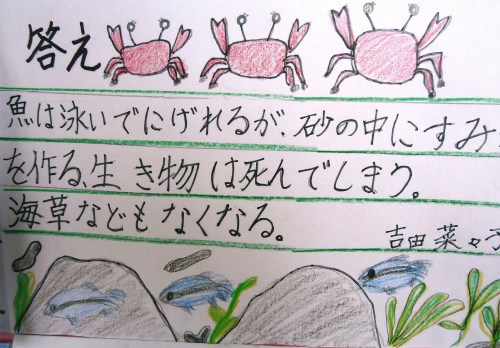 答え
魚は泳いでにげれるが、砂の中にすみ
を作る、生き物は死んでしまう。
海草などもなくなる。
吉田菜々